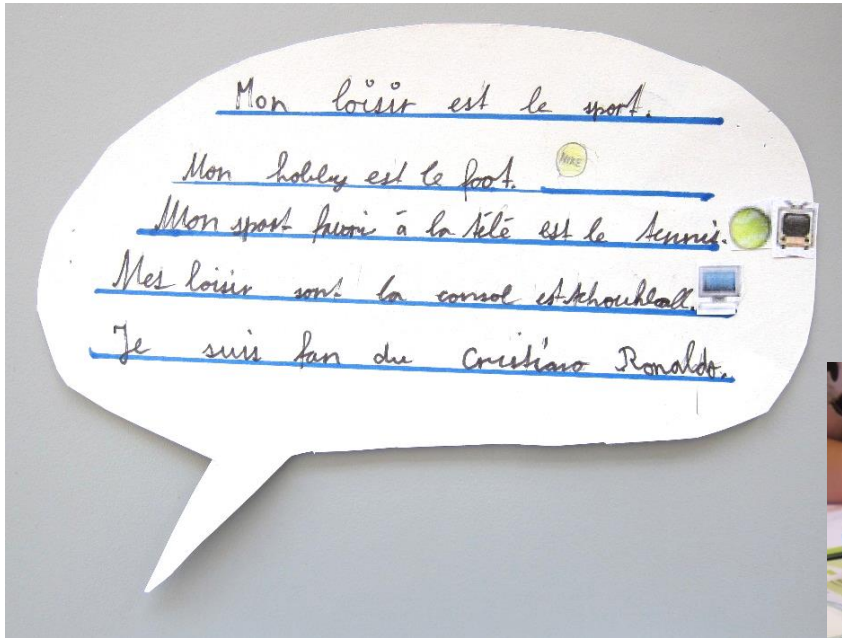 Mon loisir est le sport.
Mon hobby est le foot. NIKE
Mon sport favori à la télé est le tennis.
Mes loisir sont la consol est tchoukball.
Je suis fan du Cristiano Ronaldo.